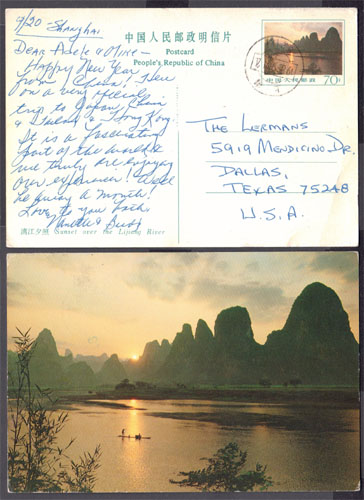 9/20 - Shanghai
Dear Adele & Mike -
Happy New Year
from China! Here
on a very
trip to Japan, China
& Hong Kong.
It is a fascinating
part of the world &
we truly are enjoying
our experience! Will
be away a month!
Love to you both,
& Budy
漓江夕照 Sunset over the Lijiang River
中国人民邮政明信片
Postcard
People's Republic of China
中国人民邮政
70分
The Lermans
5919 Mendicino Dr.
Dallas,
Texas 75248
U.S.A.